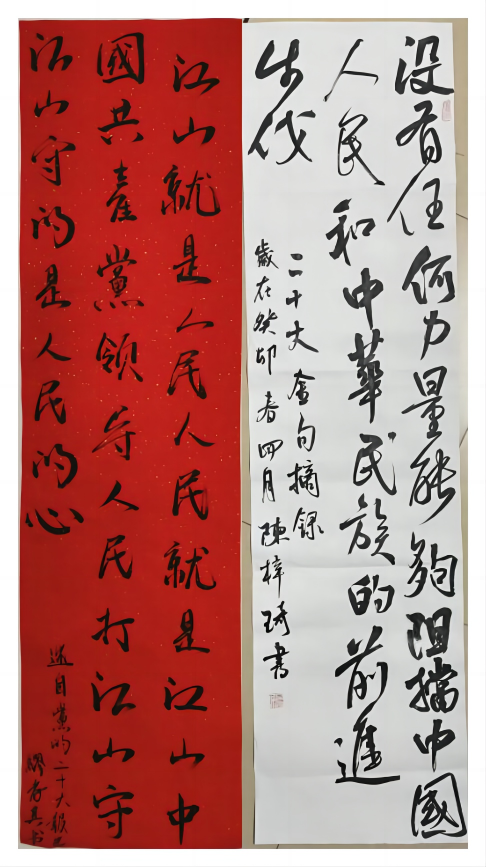 没有任何力量能夠阻擋中國
人民和中華民族的前進
步伐
二十大金句摘録
歲在癸卯春四月陳梓琦書
江山就是人民人民就是江山中
國共產黨領导人民打江山守
江山守的是人民的心
选自黨的二十大報告